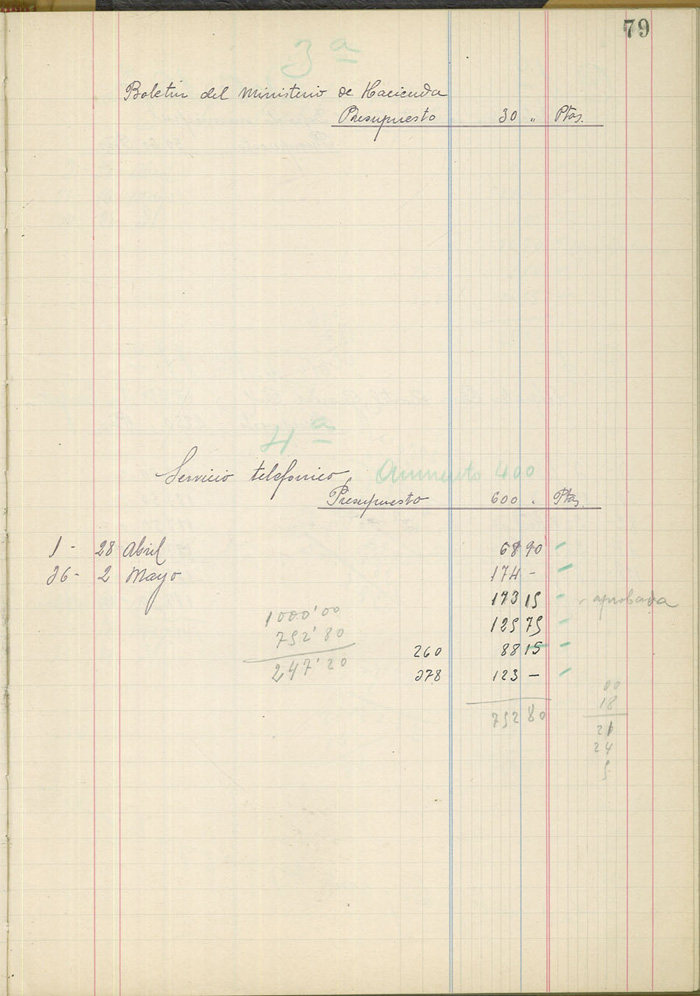 79
3ª
Boletin del Ministerio de Hacienda
Presupuesto 30 " Ptas.
4ª
Servicio telefonico, Aumento 400
Presupuesto 600 . Ptas.
1 - 28 Abril 68 90
26 - 2 Mayo 174 -
173 15 aprobada
1000'00 125 75
752'80 260 88 15
247'20 278 123 -
752 80
00
18
21
24
5